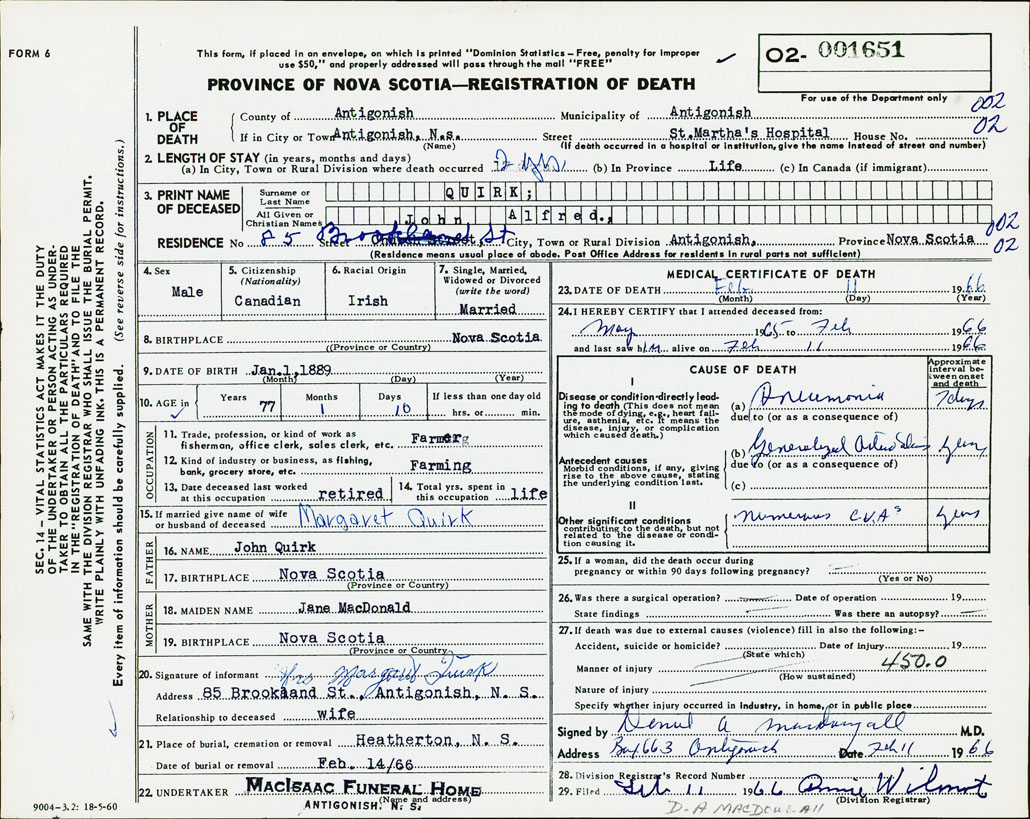 FORM 6
This form, if placed in an envelope, on which is printed "Dominion Statistics – Free, penalty for improper
use $50," and properly addressed will pass through the mail "FREE"
02- 001651
PROVINCE OF NOVA SCOTIA—REGISTRATION OF DEATH
For use of the Department only
1. PLACE OF DEATH
County of Antigonish Municipality of Antigonish 002
If in City or Town Antigonish, N.s. Street St.Martha's Hospital House No. 02
(Name) (If death occurred in a hospital or institution, give the name instead of street and number)
2. LENGTH OF STAY (in years, months and days)
(a) In City, Town or Rural Division where death occurred (b) In Province Life (c) In Canada (if immigrant)
3. PRINT NAME OF DECEASED
Surname or Last Name QUIRK;
All Given or Christian Names John Alfred.,
RESIDENCE No 85 Brookland St City, Town or Rural Division Antigonish, Province Nova Scotia 002 02
(Residence means usual place of abode. Post Office Address for residents in rural parts not sufficient)
4. Sex Male
5. Citizenship (Nationality) Canadian
6. Racial Origin Irish
7. Single, Married, Widowed or Divorced (write the word) Married
8. BIRTHPLACE Nova Scotia
((Province or Country)
9. DATE OF BIRTH Jan.1,1889
(Month) (Day) (Year)
10. AGE in Years 77 Months 1 Days 10 If less than one day old hrs. or min.
OCCUPATION
11. Trade, profession, or kind of work as fisherman, office clerk, sales clerk, etc. Farmer
12. Kind of industry or business, as fishing, bank, grocery store, etc. Farming
13. Date deceased last worked at this occupation retired
14. Total yrs. spent in this occupation life
15. If married give name of wife or husband of deceased Margaret Quirk
FATHER
16. NAME John Quirk
17. BIRTHPLACE Nova Scotia
(Province or Country)
MOTHER
18. MAIDEN NAME Jane MacDonald
19. BIRTHPLACE Nova Scotia
(Province or Country
20. Signature of informant Mrs Margaret Quirk
Address 85 Brookland St., Antigonish, N. S.
Relationship to deceased wife
21. Place of burial, cremation or removal Heatherton, N. S.
Date of burial or removal Feb. 14/66
22. UNDERTAKER MACISAAC FUNERAL HOME
(Name and address)
ANTIGONISH, N. S.
MEDICAL CERTIFICATE OF DEATH
23. DATE OF DEATH Feb 11 1966
(Month) (Day) (Year)
24. I HEREBY CERTIFY that I attended deceased from:
May 1965 to Feb 1966
and last saw him alive on Feb 11 1966
CAUSE OF DEATH
Approximate interval between onset and death
I
Disease or condition directly leading to death (This does not mean the mode of dying, e.g., heart failure, asthenia, etc. It means the disease, injury, or complication which caused death.)
(a) Pneumonia 7 days
due to (or as a consequence of)
Antecedent causes
Morbid conditions, if any, giving rise to the above cause, stating the underlying condition last.
(b) Generalized years
due to (or as a consequence of)
(c)
II
Other significant conditions
contributing to the death, but not related to the disease or condition causing it.
numerous C.V.A's years
25. If a woman, did the death occur during pregnancy or within 90 days following pregnancy?
(Yes or No)
26. Was there a surgical operation? Date of operation 19
State findings Was there an autopsy?
27. If death was due to external causes (violence) fill in also the following:–
Accident, suicide or homicide? Date of injury 19
(State which)
Manner of injury 450.0
(How sustained)
Nature of injury
Specify whether injury occurred in industry, in home, or in public place
Signed by A MacDougall M.D.
Address Box 663 Antigonish Date Feb 11 1966
28. Division Registrar's Record Number
29. Filed Feb 11 1966 Annie Wilmot
(Division Registrar)
D-A MACDOUGALL
9004-3.2: 18-5-60
SEC. 14 – VITAL STATISTICS ACT MAKES IT THE DUTY
OF THE UNDERTAKER OR PERSON ACTING AS UNDER-
TAKER TO OBTAIN ALL THE PARTICULARS REQUIRED
IN THE "REGISTRATION OF DEATH" AND TO FILE THE
SAME WITH THE DIVISION REGISTRAR WHO SHALL ISSUE THE BURIAL PERMIT.
WRITE PLAINLY WITH UNFADING INK. THIS IS A PERMANENT RECORD.
Every item of information should be carefully supplied. (See reverse side for instructions.)